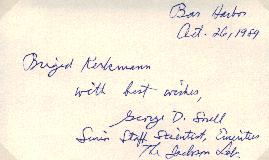 Bar Harbor
Oct. 26, 1989
Brigid Kerkmann
with best wishes,
George D. Snell
Senior Staff Scientist, Emeritus
The Jackson Lab.